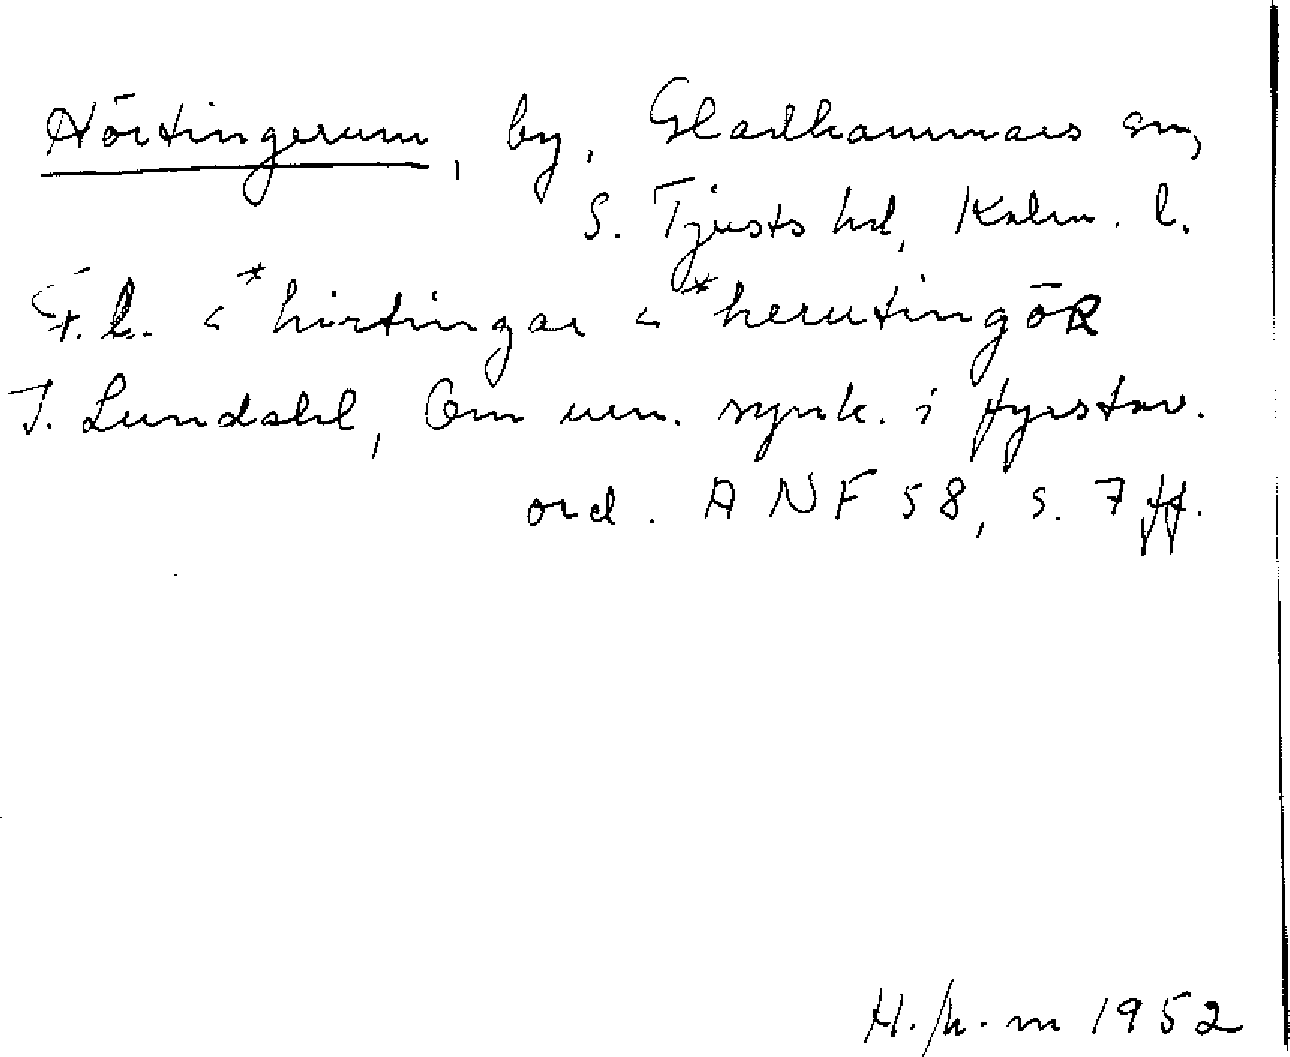 Hörtingerum, by, Gladhammars sn,
S. Tjusts hd, Kalm. l.
F.l. < *hirtingar < *herutingōR
I. Lundahl, Om urn. synk. i fyrstav.
ord. ANF 58, s. 7 ff.
1952